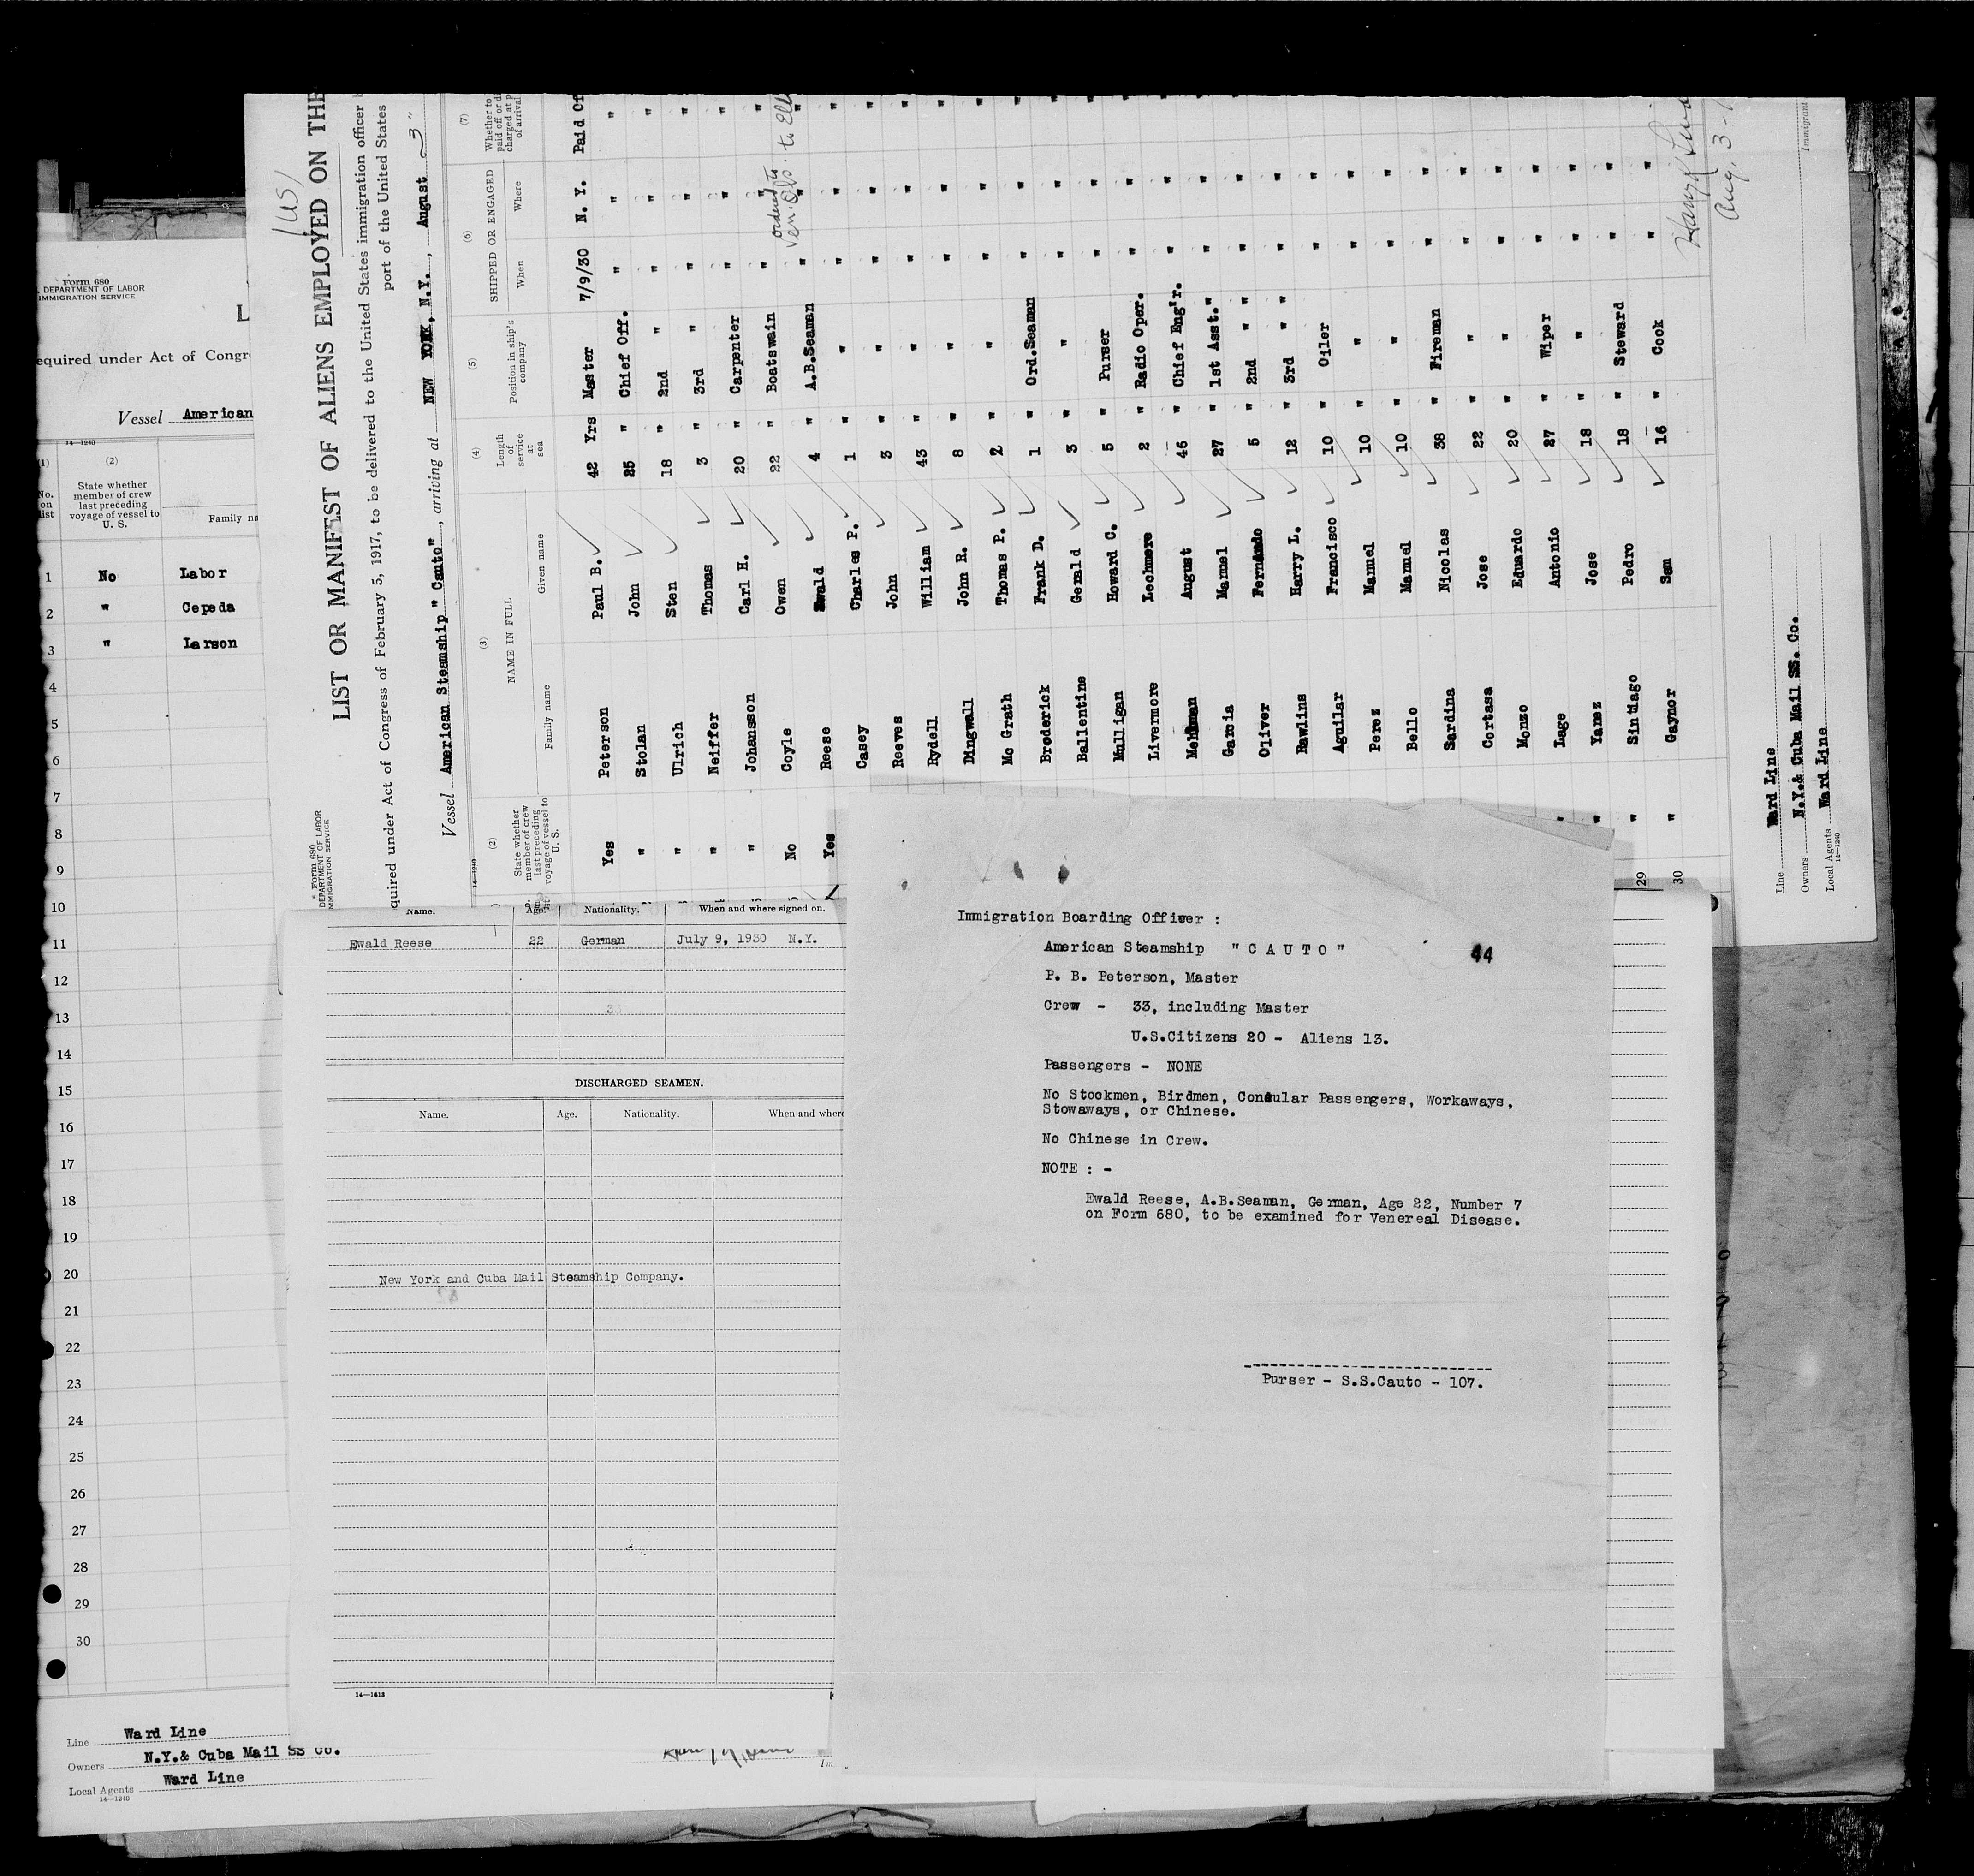 Form 680
DEPARTMENT OF LABOR
IMMIGRATION SERVICE
L
equired under Act of Congr
Vessel American
14—1240
(1)
(2)
No. on list
State whether member of crew last preceding voyage of vessel to U. S.
Family na
1 No Labor
2 " Cepeda
3 " Larson
4
5
6
7
8
9
10
11
12
13
14
15
16
17
18
19
20
21
22
23
24
25
26
27
28
29
30
Line Ward Line
Owners N.Y.& Cuba Mail SS Co.
Local Agents Ward Line
14—1240
Form 680
DEPARTMENT OF LABOR
IMMIGRATION SERVICE
LIST OR MANIFEST OF ALIENS EMPLOYED ON THE
quired under Act of Congress of February 5, 1917, to be delivered to the United States immigration officer
port of the United States
Vessel American Steamship "Cauto", arriving at NEW YORK, N.Y., August 3
14—1240
(2) (3) (4) (5) (6) (7)
State whether member of crew last preceding voyage of vessel to U. S.
NAME IN FULL
Family name Given name
Length of service at sea
Position in ship's company
SHIPPED OR ENGAGED
When Where
Whether to paid off or di charged at p of arrival
Yes Peterson Paul B. 42 Yrs Master 7/9/30 N. Y. Paid Of
" Stolan John 25 " Chief Off. " " "
" Ulrich Sten 18 " 2nd " " " "
" Neiffer Thomas 3 " 3rd " " " "
" Johansson Carl H. 20 " Carpenter " " "
No Coyle Owen 22 " Boatswain " " "
Yes Reese Ewald 4 " A.B.Seaman " " "
Casey Charles P. 1 " " " " "
Reeves John 3 " " " " "
Rydell William 43 " " " " "
Dingwall John R. 8 " " " " "
Mc Grath Thomas P. 2 " " " " "
Brederick Frank D. 1 " Ord.Seaman " " "
Ballentine Gerald 3 " " " " "
Mulligan Howard C. 5 " Purser " " "
Livermore Lechmere 2 " Radio Oper. " " "
August 46 " Chief Eng'r. " " "
Garcia Manuel 27 " 1st Asst." " " "
Oliver Fernando 5 " 2nd " " " " "
Rawlins Harry L. 12 " 3rd " " " " "
Aguilar Francisco 10 " Oiler " " "
Perez Manuel 10 " " " " "
Bello Manuel 10 " " " " "
Sardina Nicolas 38 " Fireman " " "
Cortasa Jose 22 " " " " "
Monzo Eduardo 20 " " " " "
" Lage Antonio 27 " Wiper " " "
" Yanez Jose 18 " " " " "
29 " Sintiago Pedro 18 " Steward " " "
30 " Gaynor Sam 16 " Cook " " "
Line Ward Line
Owners N.Y.& Cuba Mail SS. Co.
Local Agents Ward Line
14—1240
Immigrant
Aug. 3
Name. Age. Nationality. When and where signed on.
Ewald Reese 22 German July 9, 1930 N.Y.
DISCHARGED SEAMEN.
Name. Age. Nationality. When and where
New York and Cuba Mail Steamship Company.
14—1613
Immigration Boarding Officer :
American Steamship " C A U T O "
44
P. B. Peterson, Master
Crew - 33, including Master
U.S.Citizens 20 - Aliens 13.
Passengers - NONE
No Stockmen, Birdmen, Consular Passengers, Workaways,
Stowaways, or Chinese.
No Chinese in Crew.
NOTE : -
Ewald Reese, A.B.Seaman, German, Age 22, Number 7
on Form 680, to be examined for Venereal Disease.
Purser - S.S.Cauto - 107.